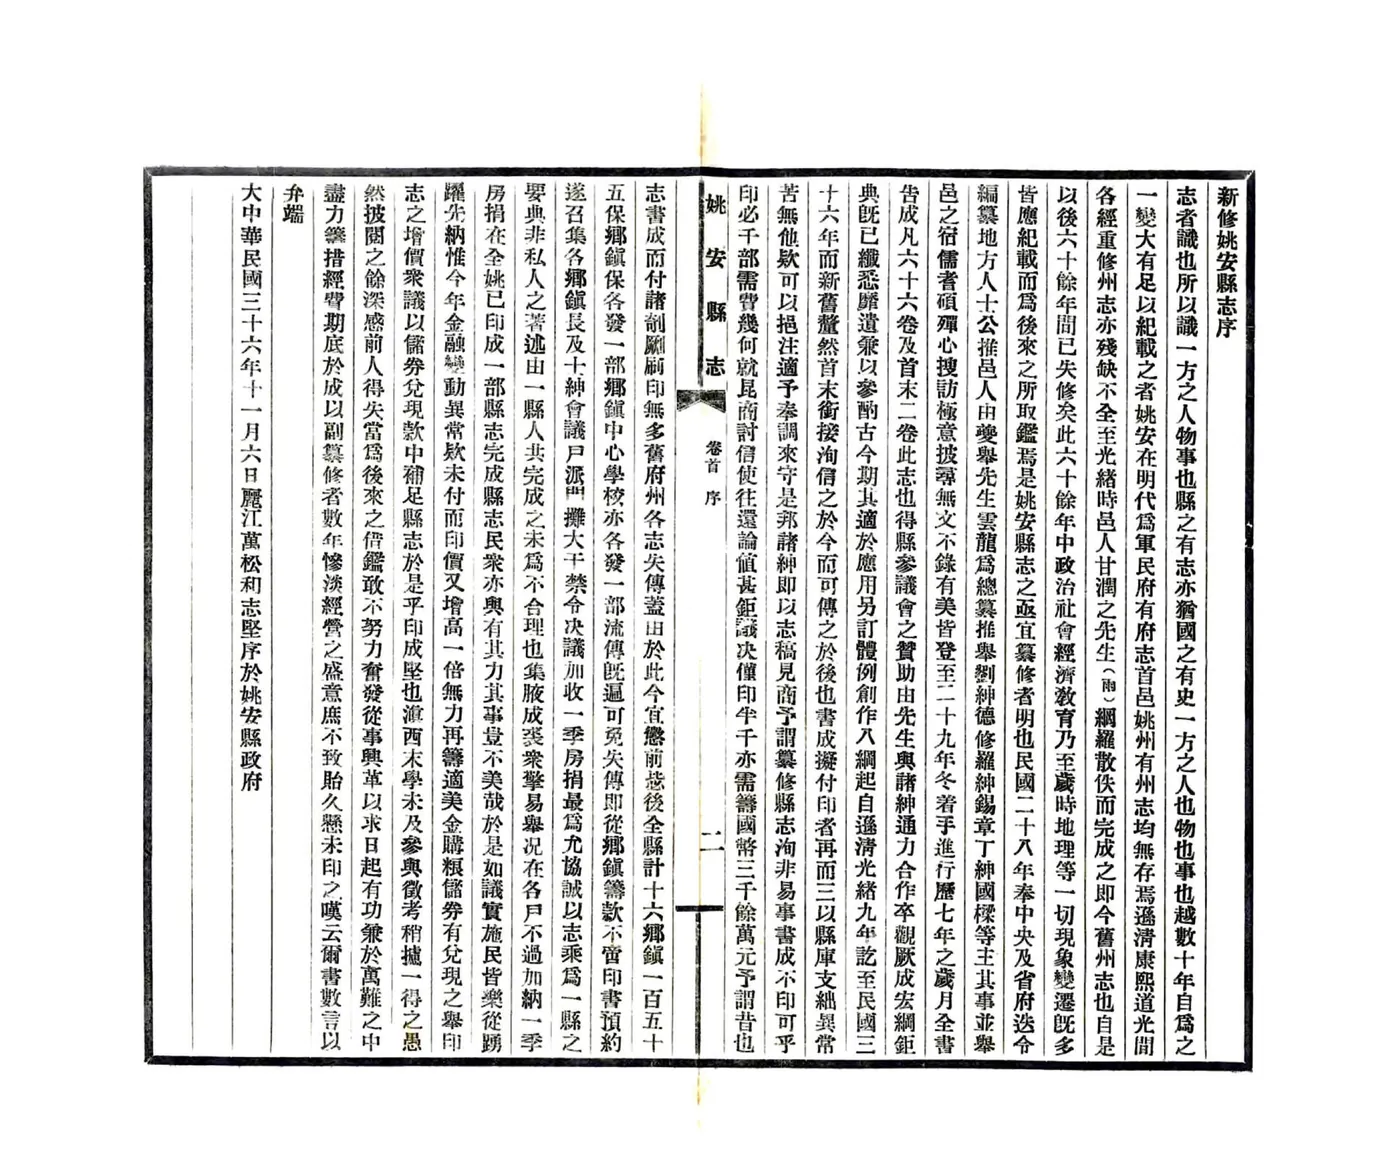 新修姚安縣志序
志者識也所以識一方之人物事也縣之有志亦猶國之有史一方之人也物也事也越數十年自爲之
一變大有足以紀載之者姚安在明代爲軍民府有府志首邑姚州有州志均無存焉遜清康熙道光間
各經重修州志亦殘缺不全至光緒時邑人甘潤之先生（雨）網羅散佚而完成之即今舊州志也自是
以後六十餘年間已失修矣此六十餘年中政治社會經濟敎育乃至歲時地理等一切現象變遷旣多
皆應紀載而爲後來之所取鑑焉是姚安縣志之亟宜纂修者明也民國二十八年奉中央及省府迭令
編纂地方人士公推邑人由夔舉先生雲龍爲總纂推舉劉紳德修羅紳錫章丁紳國樑等主其事並舉
邑之宿儒耆碩殫心搜訪極意披尋無文不錄有美皆登至二十九年冬着手進行歷七年之歲月全書
告成凡六十六卷及首末二卷此志也得縣參議會之贊助由先生與諸紳通力合作卒觀厥成宏綱鉅
典旣已纖悉靡遺兼以參酌古今期其適於應用另訂體例創作八綱起自遜清光緒九年訖至民國三
十六年而新舊釐然首末銜接洵信之於今而可傳之於後也書成擬付印者再而三以縣庫支絀異常
苦無他欵可以挹注適予奉調來守是邦諸紳即以志稿見商予謂纂修縣志洵非易事書成不印可乎
印必千部需費幾何就昆商討信使往還論值甚鉅議決僅印半千亦需籌國幣三千餘萬元予謂昔也
姚安縣志
卷首 序
二
志書成而付諸剞劂刷印無多舊府州各志失傳蓋由於此今宜懲前毖後全縣計十六鄉鎭一百五十
五保鄉鎭保各發一部鄉鎭中心學校亦各發一部流傳旣遍可免失傳即從鄉鎭籌款不啻印書預約
遂召集各鄉鎭長及士紳會議戶派門攤大干禁令決議加收一季房捐最爲允協誠以志乘爲一縣之
要典非私人之著述由一縣人共完成之未爲不合理也集腋成裘衆擎易舉況在各戶不過加納一季
房捐在全姚已印成一部縣志完成縣志民衆亦與有其力其事豈不美哉於是如議實施民皆樂從踴
躍先納惟今年金融變動異常欵未付而印價又增高一倍無力再籌適美金購粮儲券有兌現之舉印
志之增價衆議以儲券兌現款中補足縣志於是乎印成堅也滇西末學未及參與徵考稍攄一得之愚
然披閱之餘深感前人得失當爲後來之借鑑敢不努力奮發從事興革以求日起有功兼於萬難之中
盡力籌措經費期底於成以副纂修者數年慘淡經營之盛意庶不致貽久懸未印之嘆云爾書數言以
弁端
大中華民國三十六年十一月六日麗江萬松和志堅序於姚安縣政府